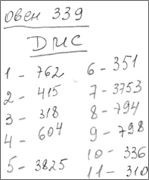 овен 339
ДИС
1 - 762
2 - 415
3 - 318
4 - 604
5 - 3825
6 - 351
7 - 3753
8 - 794
9 - 798
10 - 336
11 - 310